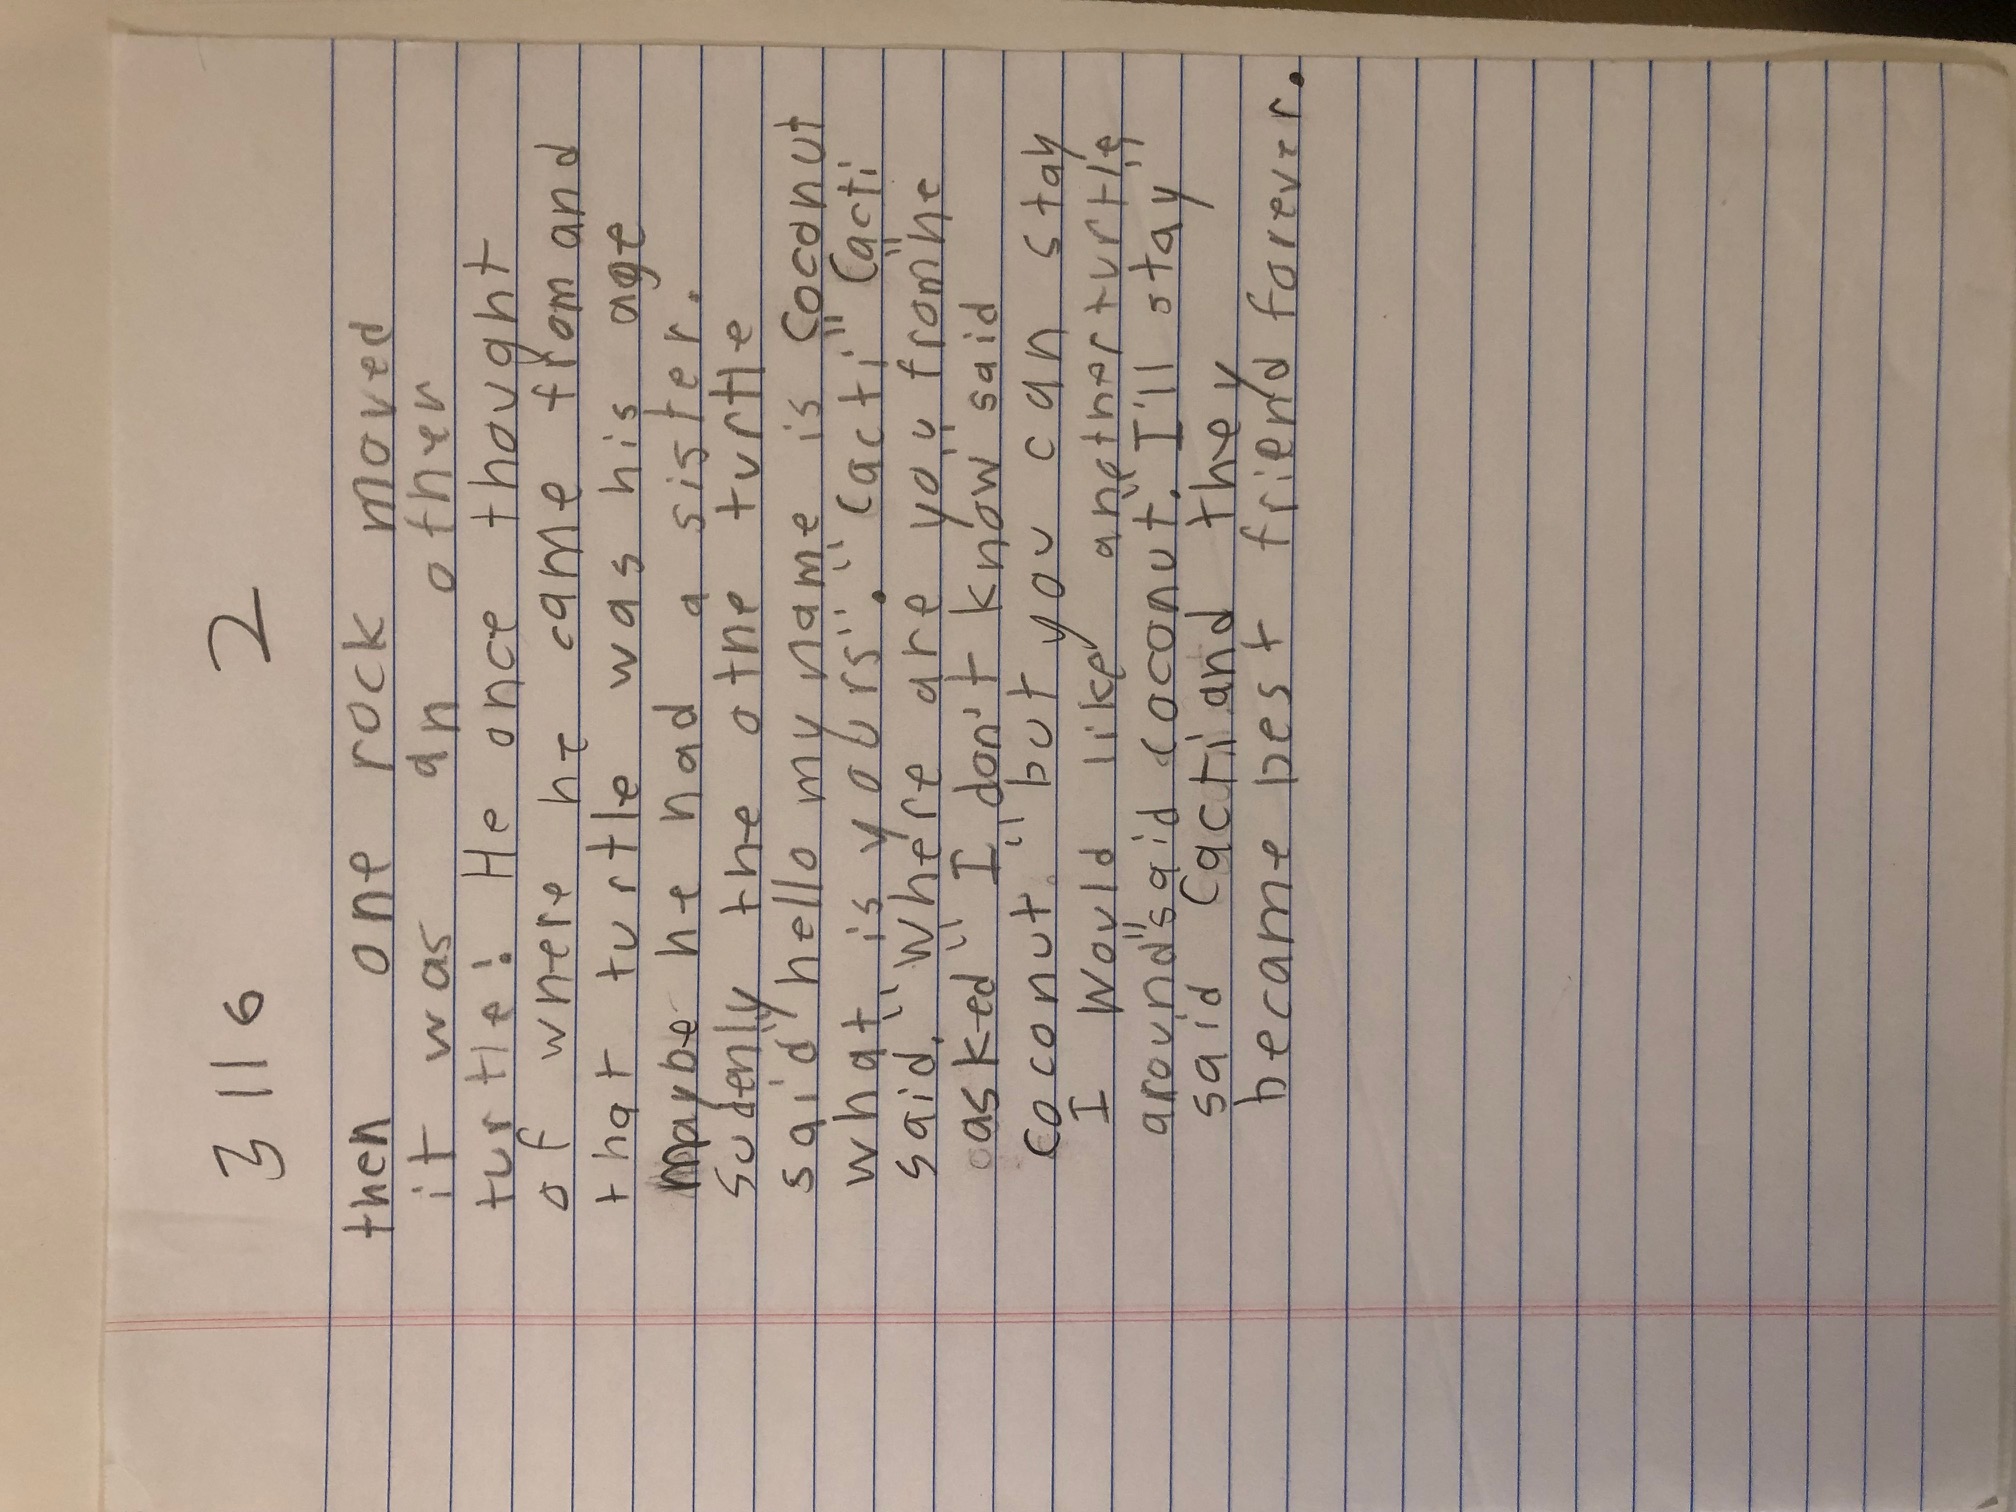 3116 2
then one rock moved
it was an other
turtle! He once thought
of where he came from and
that turtle was his age
maybe he had a sister.
sudenly the othe turtle
said "hello my name is Coconut
what is yours". "Cacti" Cacti
said. "Where are you from" he
asked "I don't know" said
coconut. "but you can stay
I would like another turtle
around" said coconut. "I'll stay"
said Cacti and they
became best friend forever.